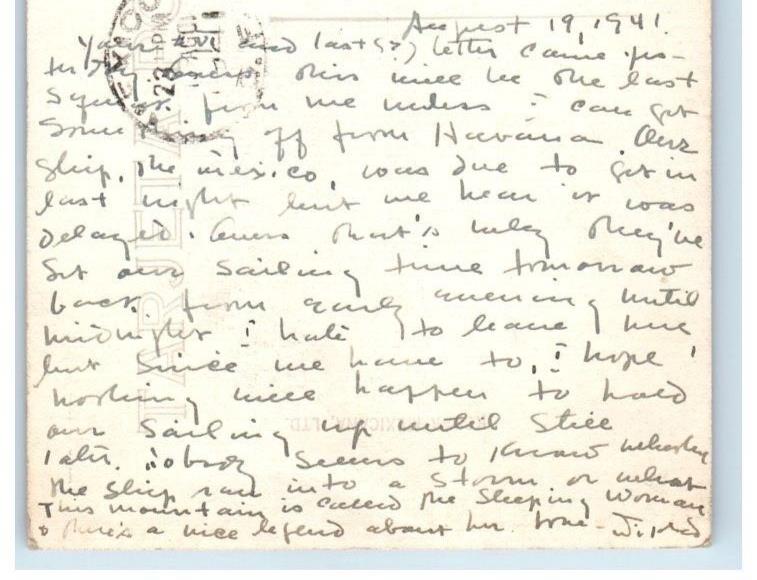 August 19, 1941.
Your and last(?) letter came yes-
terday. Guess this will be the last
from me unless I can get
something off from Havana. Our
ship, the Mexico, was due to get in
last night but we hear it was
delayed. Guess that's why they've
set our sailing time tomorrow
back from early evening until
midnight. I hate to leave here
but since we have to, I hope
nothing will happen to hold
our sailing up until still
later. Nobody seems to know whether
the ship ran into a storm or what
This mountain is called the Sleeping Woman
& there's a nice legend about her. Love -
TARJETA
MEXICANA, LTD.